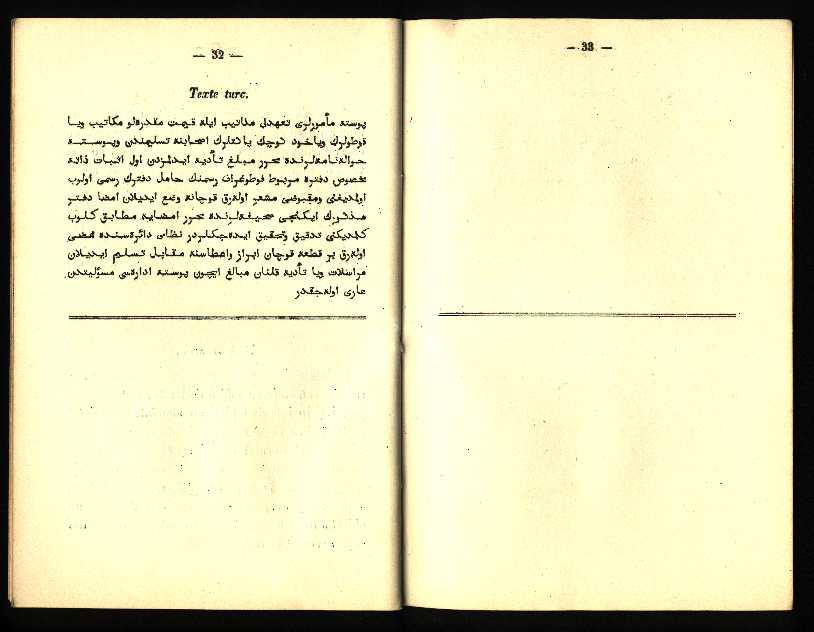 — 32 —
Texte turc.
پوسته مأمورلری تعهدلی مکاتیب ایله قیمت مقدره‌لو مکاتیب ویا
قوطولرك ویاخود کوچك پاکتلرك اصحابنه تسلیمندن وپوسته
حواله‌نامه‌لرنده محرر مبلغ تأدیه ایدلمزدن اول اثبات ذاته
مخصوص دفتره مربوط فوطوغراف رسمنك حامل دفترك رسمی اولوب
اولمدیغنی ومقبوضی مشعر اوله‌رق قوچانه وضع ایدیلان امضا دفتر
مذکورك ایکنجی صحیفه‌لرنده محرر امضایه مطابق کلوب
کلمدیکنی تدقیق وتحقیق ایده‌جکلردر نظامی دائره‌سنده ممضی
اوله‌رق بر قطعه قوچان ابراز واعطاسنه مقابل تسلیم ایدیلان
مراسلات ویا تأدیه قلنان مبالغ ایچون پوسته اداره‌سی مسؤلیتدن
عاری اوله‌جقدر
— 33 —